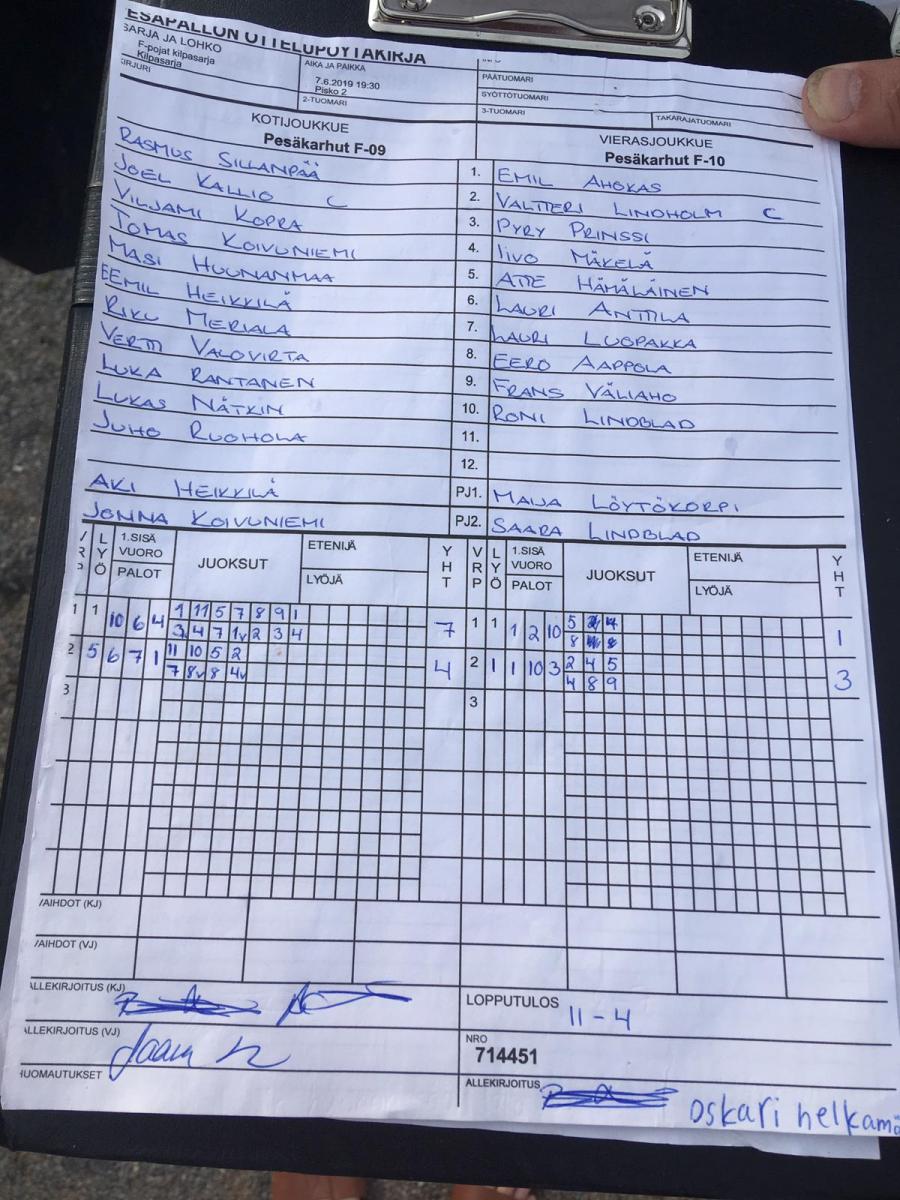 ESAPALLON OTTELUPÖYTÄKIRJA
SARJA JA LOHKO
F-pojat kilpasarja
Kilpasarja
KIRJURI
AIKA JA PAIKKA
7.6.2019 19:30
Pisko 2
2-TUOMARI
PÄÄTUOMARI
SYÖTTÖTUOMARI
3-TUOMARI TAKARAJATUOMARI
KOTIJOUKKUE VIERASJOUKKUE
Pesäkarhut F-09 Pesäkarhut F-10
RASMUS SILLANPÄÄ 1. EMIL AHOKAS
JOEL KALLIO C 2. VALTTERI LINDHOLM C
VILJAMI KOPRA 3. PYRY PRINSSI
TOMAS KOIVUNIEMI 4. IIVO MÄKELÄ
MASI HUUNANMAA 5. ATTE HÄMÄLÄINEN
EEMIL HEIKKILÄ 6. LAURI ANTTILA
RIKU MERIALA 7. LAURI LUOPAKKA
VERTTI VALOVIRTA 8. EERO AAPPOLA
LUKA RANTANEN 9. FRANS VÄLIAHO
LUKAS NÄTKIN 10. RONI LINDBLAD
JUHO RUOHOLA 11.
12.
AKI HEIKKILÄ PJ1. MAIJA LÖYTÖKORPI
JONNA KOIVUNIEMI PJ2. SAARA LINDBLAD
VRP LYÖ 1.SISÄ VUORO PALOT JUOKSUT ETENIJÄ LYÖJÄ YHT VRP LYÖ 1.SISÄ VUORO PALOT JUOKSUT ETENIJÄ LYÖJÄ YHT
1 1 10 6 4 1 11 5 7 8 9 1 7 1 1 1 2 10 5 1
3 4 7 1v 2 3 4 8
2 5 6 7 1 11 10 5 2 4 2 1 1 10 3 2 4 5 3
7 8v 8 4v 4 8 9
3 3
VAIHDOT (KJ)
VAIHDOT (VJ)
ALLEKIRJOITUS (KJ)
LOPPUTULOS 11-4
ALLEKIRJOITUS (VJ)
NRO
714451
HUOMAUTUKSET
ALLEKIRJOITUS oskari helkamä